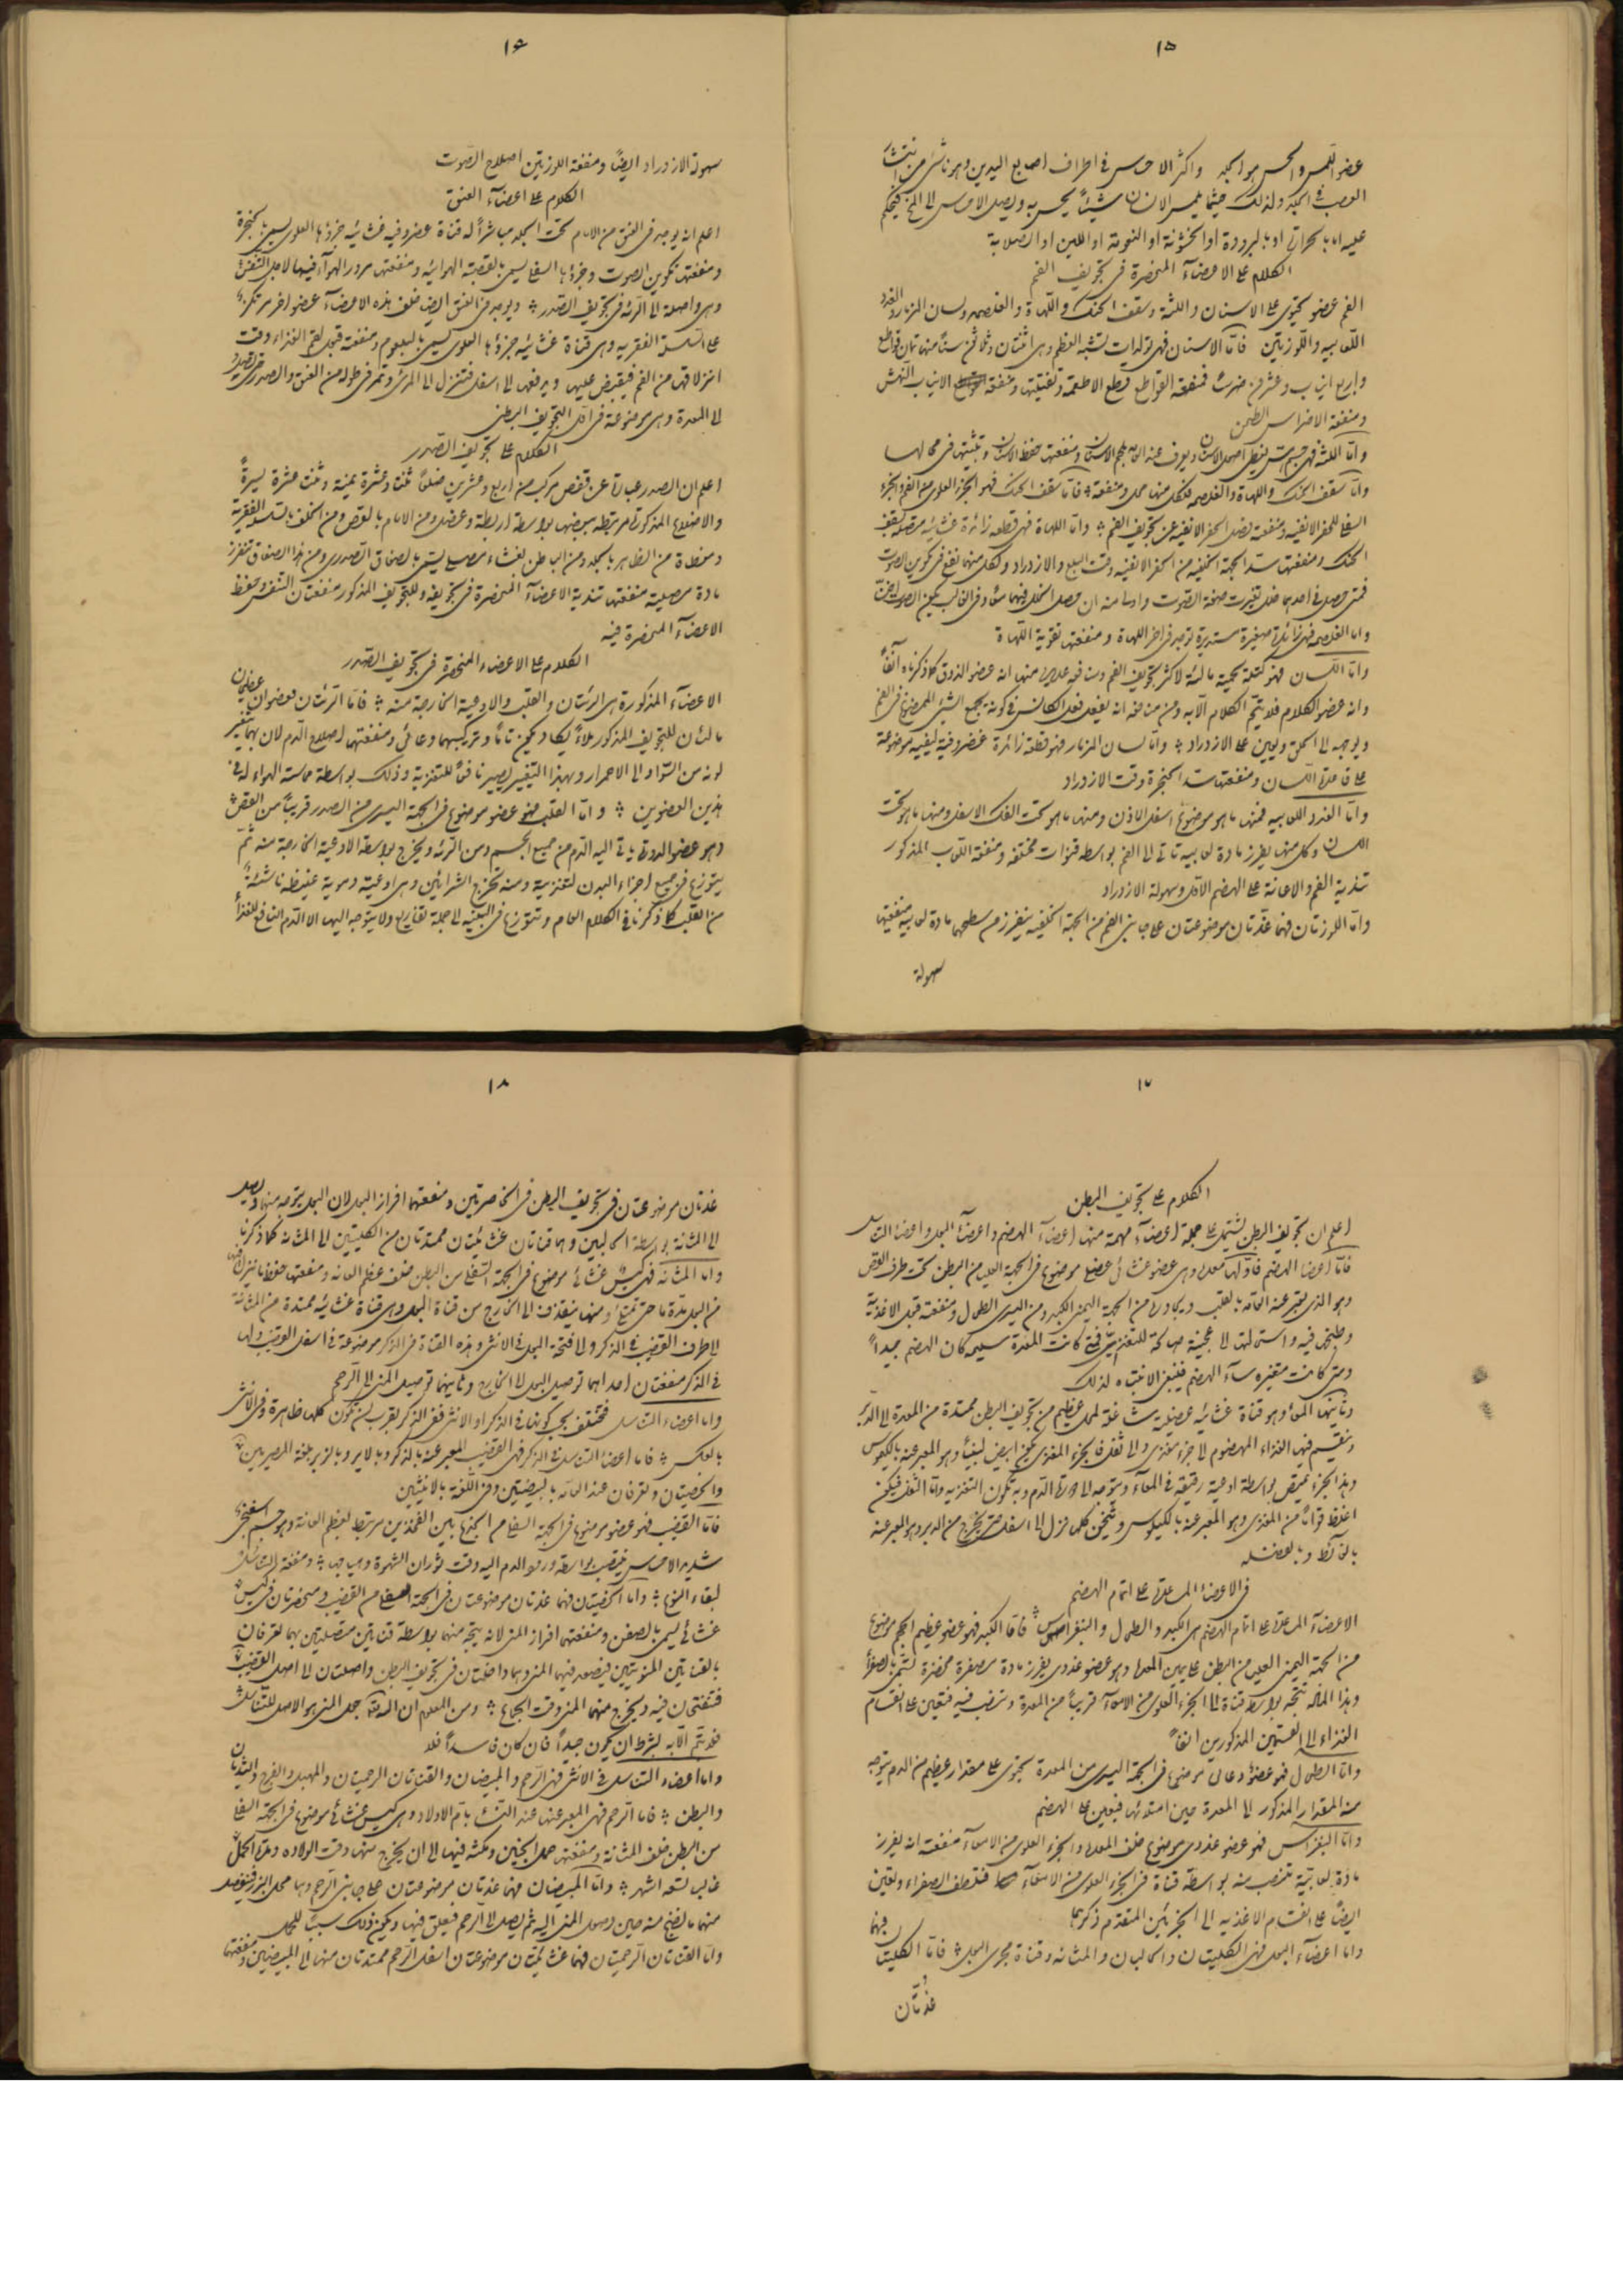 ١٥
عضو اللمس والحس هو الجلد واكثر الاحساس فى اطراف اصابع اليدين وهو ناشئ من انتشار
العصب فى الجلد ولذلك حيثما يلمس الانسان شيئاً يحس به ويصل الاحساس الى المخ فيحكم
عليه اما بالحرارة او بالبرودة او الخشونة او النعومة او اللين او الصلابة
الكلام على الاعضآء المنحصرة فى تجويف الفم
الفم عضو يحتوى على الاسنان واللثة وسقف الحنك واللهاة والغلصمه ولسان المزمار والغدد
اللعابيه واللوزتين فامّا الاسنان فهى تولدات تشبه العظم وهى اثنتان وثلاثون سناً منها ثمان قواطع
واربع انياب وعشرون ضرساً فمنفعة القواطع قطع الاطعمة وتفتيتها ومنفعة الانياب النهش
ومنفعة الاضراس الطحن
وامّا اللثة فهى جسم يغطى اصول الاسنان ويعرف عند العامّة بلحم الاسنان ومنفعتها حفظ الاسنان وتثبيتها فى محالها
وامّا سقف الحنك واللهاة والغلصمه فلكل منها محل ومنفعة فامّا سقف الحنك فهو الجزء العلوى من الفم والجزء
السفلى للحفر الانفيه ومنفعته فصل الحفر الانفيه عن تجويف الفم وامّا اللهاة فهى قطعة زائدة غشائيه متصلة بسقف
الحنك ومنفعتها سد الجهة الخلفيه من الحفر الانفيه وقت البلع والازدراد ولكل منهما نفع فى تكوين الصوت
فمتى حصل فى احدهما خلل تغيرت صفة الصوت وادا منه ان حصل الخلل فيهما معاً وفى الغالب يكون الصوت اخنّ
وامّا الغلصمه فهى زائدة صغيرة مستديرة توجد فى اخر اللهاة ومنفعتها تقوية اللهاة
وامّا اللسان فهو كتلة لحمية مالئة لاكثر تجويف الفم ومنافعه عديده منها انه عضو الذوق كما ذكرناه آنفاً
وانه عضو الكلام فلا يتم الكلام الّا به ومن منافعه انه يفعل فعل المكانس فى كونه يجمع الشئ الممضوغ فى الفم
ويوجهه الى الحلق ويعين على الازدراد وامّا لسان المزمار فهو قطعة زائدة غضروفية ليفيه موضوعة
على قاعدة اللسان ومنفعتها سد الحنجرة وقت الازدراد
وامّا الغدد اللعابيه فمنها ما هو موضوع اسفل الاذن ومنها ما هو تحت الفك الاسفل ومنها ما هو تحت
اللسان وكل منها يفرز مادة لعابيه تاتى الى الفم بواسطة قنوات مختلفه ومنفعة اللعاب المذكور
تندية الفم والاعانة على الهضم الاول وسهولة الازدراد
وامّا اللوزتان فهما غدّتان موضوعتان على جانبى الفم من الجهة الخلفيه يفرز من سطحهما مادة لعابيه منفعتها
سهولة
١٦
سهولة الازدراد ايضاً ومنفعة اللوزتين اصلاح الصوت
الكلام على اعضآء العنق
اعلم انه يوجد فى العنق من الامام تحت الجلد مباشرةً له قناة غضروفيه غشائيه جزؤها العلوى يسمى بالحنجرة
ومنفعتها تكوين الصوت وجزؤها السفلى يسمى بالقصبة الهوائيه ومنفعتها مرور الهوآء فيها لاجل التنفس
وهى واصلة الى الرئه فى تجويف الصدر ويوجد فى العنق ايضا خلف هذه الاعضآء عضو اخر مرتكز
على السلسلة الفقريه وهى قناة غشائيه جزؤها العلوى يسمى بالبلعوم ومنفعته قبول لقم الغذاء وقت
انزلاقها من الفم فيقبض عليها ويدفعها الى اسفل فتنزل الى المرئ وتمر فى طوله من العنق والصدر حتى تصل
الى المعدة وهى موضوعة فى اول التجويف البطنى
الكلام على تجويف الصدر
اعلم ان الصدر عبارة عن قفص مركب من اربع وعشرين ضلعاً ثنتا وعشرة يمنية وثنتا عشرة يسيرةً
والاضلاع المذكورة مرتبطة ببعضها بواسطة اربطة وعضل ومن الامام بالقص ومن الخلف بالسلسلة الفقرية
ومغطاة من الظاهر بالجلد ومن الباطن بغشاء مصلى يسمى بالصفاق الصدرى ومن هذا الصفاق تنفرز
مادة مصلية منفعتها تندية الاعضآء المنحصرة فى تجويفه وللتجويف المذكور منفعتان التنفس وحفظ
الاعضآء المنحصرة فيه
الكلام على الاعضاء المنحصرة فى تجويف الصدر
الاعضآء المذكورة هى الرئتان والقلب والاوعية الخارجة منه فامّا الرئتان فعضوان عظيمان
مالئان للتجويف المذكور ملأً يكاد يكون تامّاً وتركيبهما وعائى ومنفعتهما اصلاح الدم لان بهما يتغير
لونه من السّواد الى الاحمرار وبهذا التغيير يصير نافعاً للتغذية وذلك بواسطة مماسة الهواء له فى
هذين العضوين وامّا القلب فهو عضو موضوع فى الجهة اليسرى من الصدر قريباً من القص
وهو عضو الدورة ياتى اليه الدم من جميع الجسم ومن الرئه ويخرج بواسطة الاوعية الخارجة منه ثمّ
يتوزع فى جميع اجزاء البدن لتغذيته ومنه تخرج الشرائين وهى اوعية دموية غليظه ناشئة
من القلب كما ذكرنا فى الكلام العام وتتوزع فى البنيه الى جملة تفاريع ولا يتوجه اليها الا الدم النافع للغذاء
١٧
الكلام على تجويف البطن
اعلم ان تجويف البطن يشتمل على جملة اعضآء مهمة منها اعضآء الهضم واعضآء البول واعضا التناسل
فامّا اعضا الهضم فاولها المعده وهى عضو غشائى عضلى موضوع فى الجهة العليا من البطن تحت طرف القص
وهو الذى يعبر عنه العامّة بالقلب ويجاورها من الجهة اليمنى الكبد ومن اليسرى الطحال ومنفعته قبول الاغذية
وطبخها فيه واستحالتها الى عجينة صالحة للتغذية فمتى كانت المعدة سليمه كان الهضم جيداً
ومتى كانت متغيره سآء الهضم فينبغى الانتباه لذلك
وثانيها المعآ وهو قناة غشائيه عضليه شاغلة لمحل عظيم من تجويف البطن ممتدة من المعدة الى الدبر
وينقسم فيها الغذاء المهضوم الى جزء مغذى والى ثفل فالجزء المغذى يكون ابيض لبنياً وهو المعبر عنه بالكيلوس
وهذا الجزء يمتص بواسطة اوعية رقيقه فى المعآء ويتوجه الى دورة الدم وبه تكون التغذيه وامّا الثفل فيكون
اغلظ قواماً من المغذى وهو المعبر عنه بالكيلوس ويثخن كلما نزل الى اسفل حتى يخرج من الدبر وهو المعبر عنه
بالغائط وبالفضله
فى الاعضا المساعدة على اتمام الهضم
الاعضآء المساعدة على اتمام الهضم هى الكبد والطحال والبنقراس فامّا الكبد فهو عضو عظيم الحجم موضوع
من الجهة اليمنى العليا من البطن على يمين المعده وهو عضو غددى يفرز مادة مصفرة مخضرة تسمّى بالصفراء
وهذا المادة تتجه بواسطة قناة الى الجزء العلوى من الامعآء قريباً من المعدة وتنصب فيه فتعين على انقسام
الغذاء الى القسمين المذكورين انفاً
وامّا الطحال فهو عضو وعائى موضوع فى الجهة اليسرى من المعدة يحتوى على مقدار عظيم من الدم يتوجه
منه المقدار المذكور الى المعدة حين امتلائها فيعين على الهضم
وامّا البنقراس فهو عضو غددى موضوع خلف المعده والجزء العلوى من الامعآء منفعته انه يفرز
مادة لعابية تنصب منه بواسطة قناة فى الجزء العلوى من الامعآء فتلطف الصفراء وتعين
ايضاً على انقسام الاغذيه الى الجزئين المتقدم ذكرهما
وامّا اعضآء البول فهى الكليتان والحالبان والمثانه وقناة مجرى البول فامّا الكليتان فهما
غدّتان
١٨
غدّتان موضوعتان فى تجويف البطن فى الخاصرتين ومنفعتهما افراز البول لان البول يتوجه منهما ويصل
الى المثانة بواسطة الحالبين وهما قناتان غشائيتان ممتدتان من الكليتين الى المثانه كما ذكرنا
وامّا المثانه فهى كيس غشائى موضوع فى الجهة السفلى من البطن خلف عظم العانه ومنفعتها حفظ ما ينزل فيها
من البول مدّة ما حتى تمتلئ ومنها ينقذف الى الخارج من قناة البول وهى قناة غشائيه ممتدة من المثانة
الى طرف القضيب فى الذكر والى فتحة البول فى الانثى وهذه القناة فى الذكر موضوعة فى اسفل القضيب ولها
فى الذكر منفعتان احداهما توصيل البول الى الخارج وثانيهما توصيل المنى الى الرحم
وامّا اعضاء التناسل فتختلف بحسب كونها فى الذكر او الانثى ففى الذكر يقرب ان تكون كلها ظاهرة وفى الانثى
بالعكس فامّا اعضا التناسل فى الذكر فهى القضيب المعبر عنه بالذكر وبالاير وبالزبر بلغة المصريين
والخصيتان وتعرفان عند العامّه بالبيضتين وفى اللغة بالانثيين
فامّا القضيب فهو عضو موضوع فى الجهة السفلى من الجذع بين الفخذين مرتبط بعظم العانة وهو جسم اسفنجى
شديد الاحساس ينتصب بواسطة ورود الدم اليه وقت ثوران الشهوة وهيجانها ومنفعته التناسل
لبقاء النوع وامّا الخصيتان فهما غدتان موضوعتان فى الجهة السفلى من القضيب ومنحصرتان فى كيس
غشائى يسمى بالصفن ومنفعتهما افراز المنى لانه يتجه منهما بواسطة قناتين متصلتين بهما تعرفان
بالقناتين المنويتين فيصعد فيهما المنى وهما داخلتان فى تجويف البطن واصلتان الى اصل القضيب
فتنفتحان فيه ويخرج منهما المنى وقت الجماع ومن المعلوم ان الله جعل المنى هو الاصل للتناسل
فلا يتم الّا به بشرط ان يكون جيداً فان كان فاسداً فلا
وامّا اعضاء التناسل فى الانثى فهى الرحم والمبيضان والقناتان الرحميتان والمهبل والفرج والثديان
والبظر فامّا الرحم فهى المعبر عنها عند النساء بام الاولاد وهى كيس غشائى موضوع فى الجهة السفلى
من البطن خلف المثانه ومنفعتها حمل الجنين ومكثه فيها الى ان يخرج منها وقت الولاده ومدة الحمل
غالبا تسعه اشهر وامّا المبيضان فهما غدتان موضوعتان على جانبى الرحم وهما محل البزر فينفصل
منهما ما نضج منه حين وصول المنى اليه ثم يصل الى الرحم فيعلق فيها ويكون ذلك سبباً للحمل
وامّا القناتان الرحميتان فهما غشائيتان موضوعتان اسفل الرحم ممتدتان منها الى المبيضين ومنفعتهما